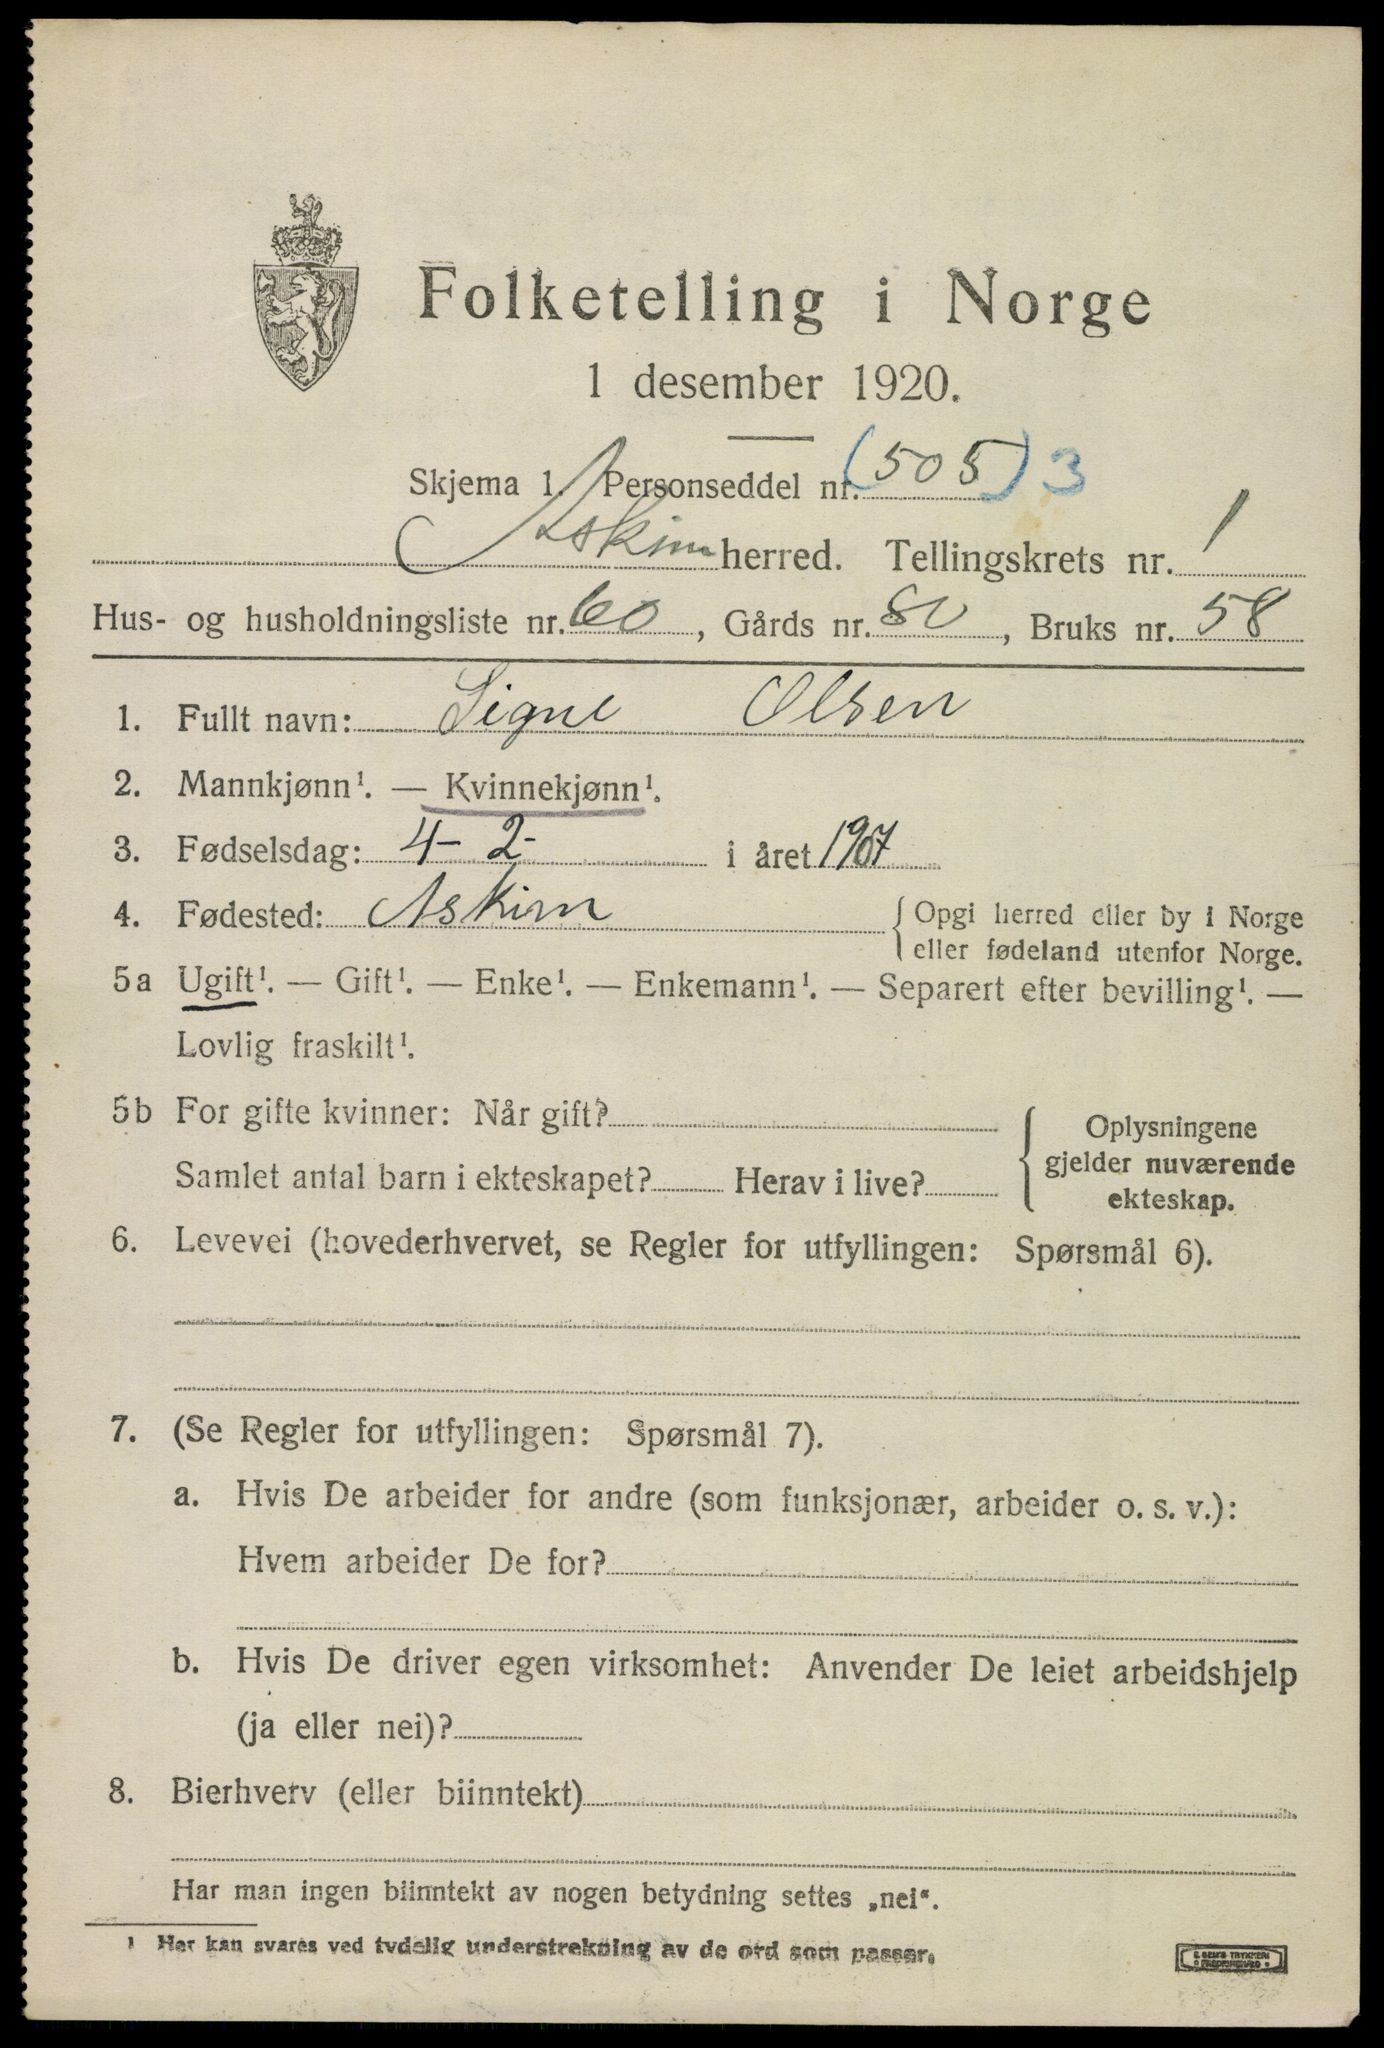 Folketelling i Norge
1 desember 1920.
Skjema 1. Personseddel nr. (505) 3
Askim herred. Tellingskrets nr. 1
Hus- og husholdningsliste nr. 60, Gårds nr. 80, Bruks nr. 58
1. Fullt navn: Signe Olsen
2. Mannkjønn¹. — Kvinnekjønn¹.
3. Fødselsdag: 4- 2- i året 1907
4. Fødested: Askim { Opgi herred eller by i Norge
eller fødeland utenfor Norge.
5a Ugift¹. — Gift¹. — Enke¹. — Enkemann¹. — Separert efter bevilling¹. —
Lovlig fraskilt¹.
5b For gifte kvinner: Når gift?
Samlet antal barn i ekteskapet? Herav i live?
{ Oplysningene
gjelder nuværende
ekteskap.
6. Levevei (hovederhvervet, se Regler for utfyllingen: Spørsmål 6).
7. (Se Regler for utfyllingen: Spørsmål 7).
a. Hvis De arbeider for andre (som funksjonær, arbeider o. s. v.):
Hvem arbeider De for?
b. Hvis De driver egen virksomhet: Anvender De leiet arbeidshjelp
(ja eller nei)?
8. Bierhverv (eller biinntekt)
Har man ingen biinntekt av nogen betydning settes „nei“.
1 Her kan svares ved tydelig understrekning av de ord som passer.